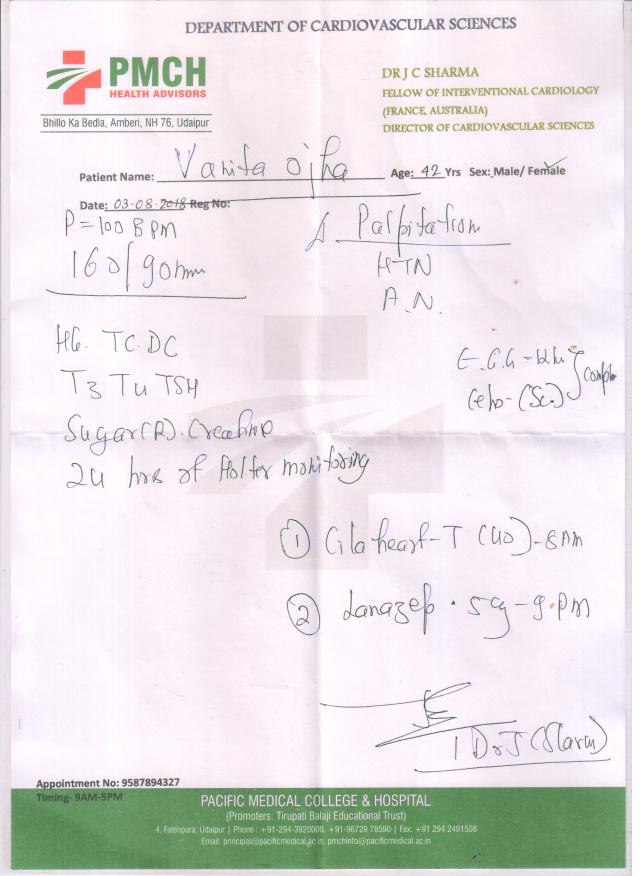 DEPARTMENT OF CARDIOVASCULAR SCIENCES
PMCH
HEALTH ADVISORS
Bhillo Ka Bedla, Amberi, NH 76, Udaipur
DR J C SHARMA
FELLOW OF INTERVENTIONAL CARDIOLOGY
(FRANCE, AUSTRALIA)
DIRECTOR OF CARDIOVASCULAR SCIENCES
Patient Name: Vanita Ojha Age: 42 Yrs Sex: Male/ Female
Date: 03-08-2018 Reg No:
P=100 BPM
160/90mm
Palpitation
HTN
A.N.
HG. TC. DC
T3 T4 TSH
Sugar(R). Creatine
24 hrs of Holter monitoring
E.C.G -
Echo-
① Cilaheart-T (40)-8AM
② Lanazep . 5 - 9.PM
Appointment No: 9587894327
Timing- 9AM-5PM
PACIFIC MEDICAL COLLEGE & HOSPITAL
(Promoters: Tirupati Balaji Educational Trust)
4, Fatehpura, Udaipur | Phone : +91-294-3920000, +91-96729 78590 | Fax: +91 294 2491508
Email: principal@pacificmedical.ac.in, pmchinfo@pacificmedical.ac.in